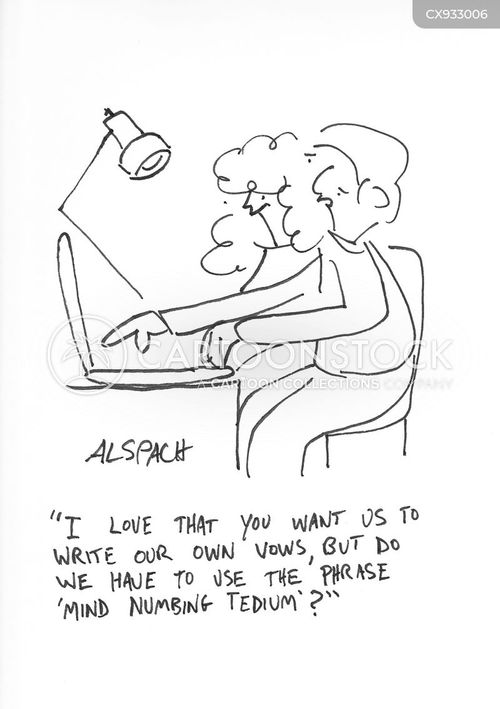 CX933006
CARTOONSTOCK
A CARTOON COLLECTIONS COMPANY
ALSPACH
"I LOVE THAT YOU WANT US TO
WRITE OUR OWN VOWS, BUT DO
WE HAVE TO USE THE PHRASE
'MIND NUMBING TEDIUM'?"